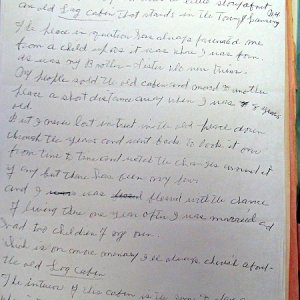 little story about
an old Log Cabin That stands in the Town of
The place in question has always fascinated me
from a child up as it was where I was born.
as was my Brother - Sister
My people sold the old cabin and moved to another
place a short distance away when I was 8 years
old.
But I never lost interest in the old place down
through the years and went back to look it over
from time to time and note the changes around it
if any but there has been very few
and I was blessed with the chance
of living there one year after I was married and
I had two children of my own.
Which is one more memory I'll always cherish about
the old Log Cabin
The interior of this cabin is the